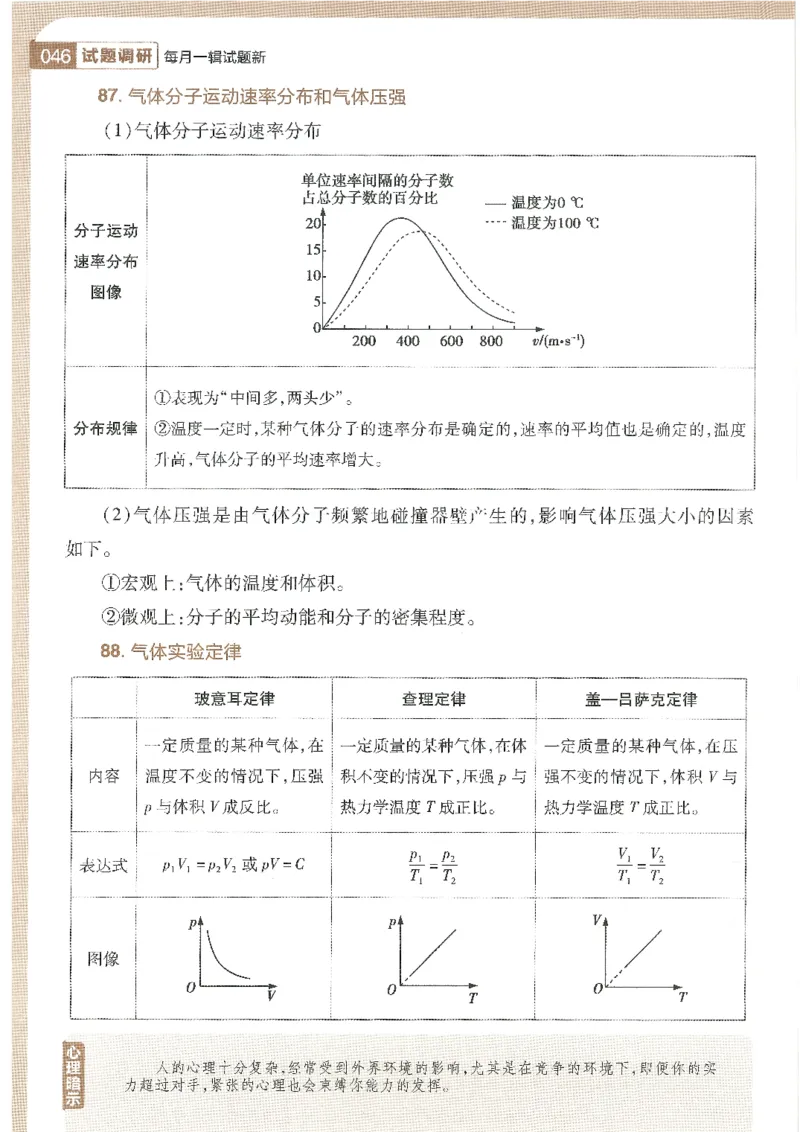 046 试题调研 每月一辑试题新
87. 气体分子运动速率分布和气体压强
(1)气体分子运动速率分布
分子运动
速率分布
图像
单位速率间隔的分子数
占总分子数的百分比
温度为0 ℃
温度为100 ℃
20
15
10
5
0
200 400 600 800 v/(m·s⁻¹)
分布规律
①表现为“中间多,两头少”。
②温度一定时,某种气体分子的速率分布是确定的,速率的平均值也是确定的,温度
升高,气体分子的平均速率增大。
(2)气体压强是由气体分子频繁地碰撞器壁产生的,影响气体压强大小的因素
如下。
①宏观上:气体的温度和体积。
②微观上:分子的平均动能和分子的密集程度。
88. 气体实验定律
玻意耳定律 查理定律 盖—吕萨克定律
内容
一定质量的某种气体,在
温度不变的情况下,压强
p与体积V成反比。
一定质量的某种气体,在体
积不变的情况下,压强p与
热力学温度T成正比。
一定质量的某种气体,在压
强不变的情况下,体积V与
热力学温度T成正比。
表达式
p₁V₁=p₂V₂或pV=C
p₁/T₁=p₂/T₂
V₁/T₁=V₂/T₂
图像
p O V
p O T
V O T
心理暗示
人的心理十分复杂,经常受到外界环境的影响,尤其是在竞争的环境下,即便你的实
力超过对手,紧张的心理也会束缚你能力的发挥。